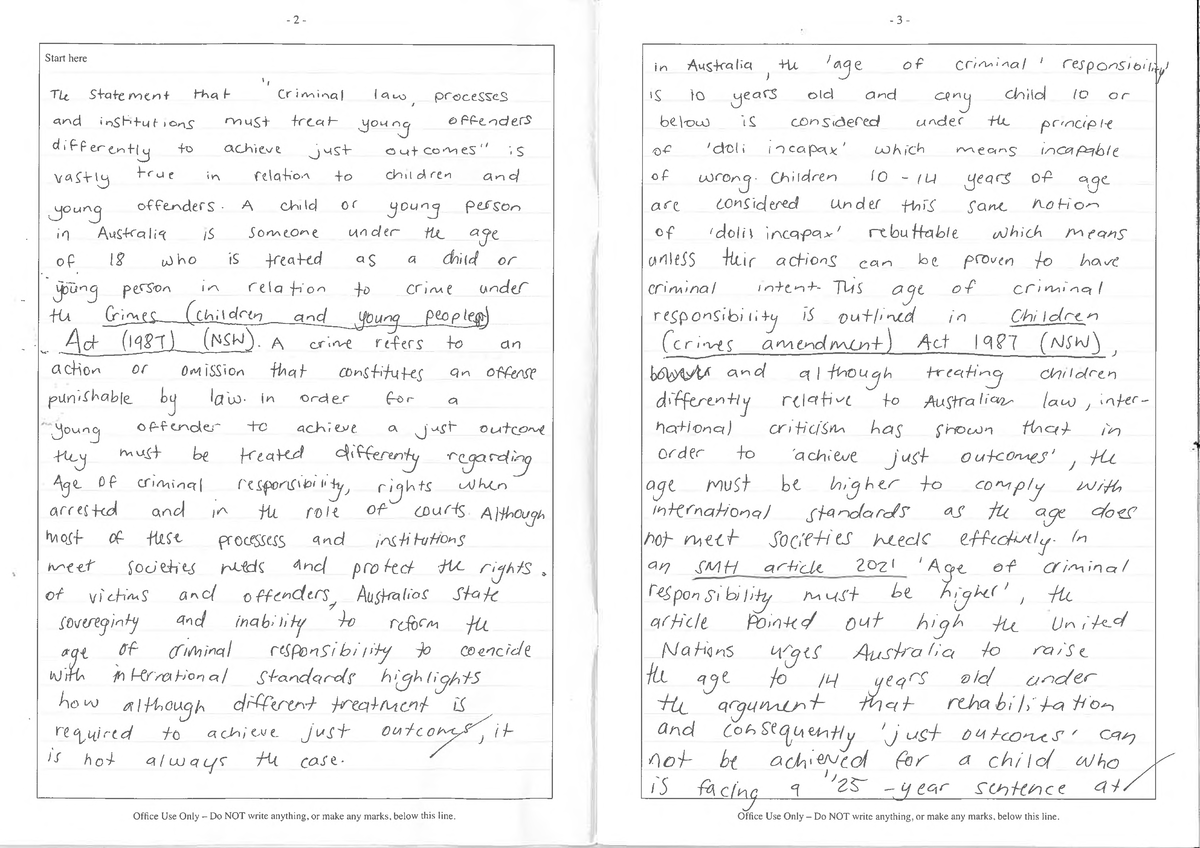 - 2 -
Start here
The statement that "criminal law, processes
and institutions must treat young offenders
differently to achieve just outcomes" is
vastly true in relation to children and
young offenders. A child or young person
in Australia is someone under the age
of 18 who is treated as a child or
young person in relation to crime under
the Crimes (children and young people)
Act (1987) (NSW). A crime refers to an
action or omission that constitutes an offense
punishable by law. in order for a
young offender to achieve a just outcome
they must be treated differenty regarding
Age of criminal responsibility, rights when
arrested and in the role of courts. Although
most of these processess and institutions
meet societies needs and protect the rights
of victims and offenders, Australias state
sovereginty and inability to reform the
age of criminal responsibility to coencide
with international standards highlights
how although different treatment is
required to achieve just outcomes, it
is not always the case.
Office Use Only – Do NOT write anything, or make any marks, below this line.
- 3 -
in Australia, the 'age of criminal responsibility'
is 10 years old and any child 10 or
below is considered under the principle
of 'doli incapax' which means incapable
of wrong. Children 10 - 14 years of age
are considered under this same notion
of 'dolis incapax' rebuttable which means
unless their actions can be proven to have
criminal intent. This age of criminal
responsibility is outlined in Children
(crimes amendment) Act 1987 (NSW),
and although treating children
differently relative to Australian law, inter-
national criticism has shown that in
order to 'achieve just outcomes', the
age must be higher to comply with
international standards as the age does
not meet societies needs effectively. In
an SMH article 2021 'Age of criminal
responsibility must be higher', the
article pointed out high the United
Nations urges Australia to raise
the age to 14 years old under
the argument that rehabilitation
and consequently 'just outcomes' can
not be achieved for a child who
is facing a "25 -year sentence at
Office Use Only – Do NOT write anything, or make any marks, below this line.